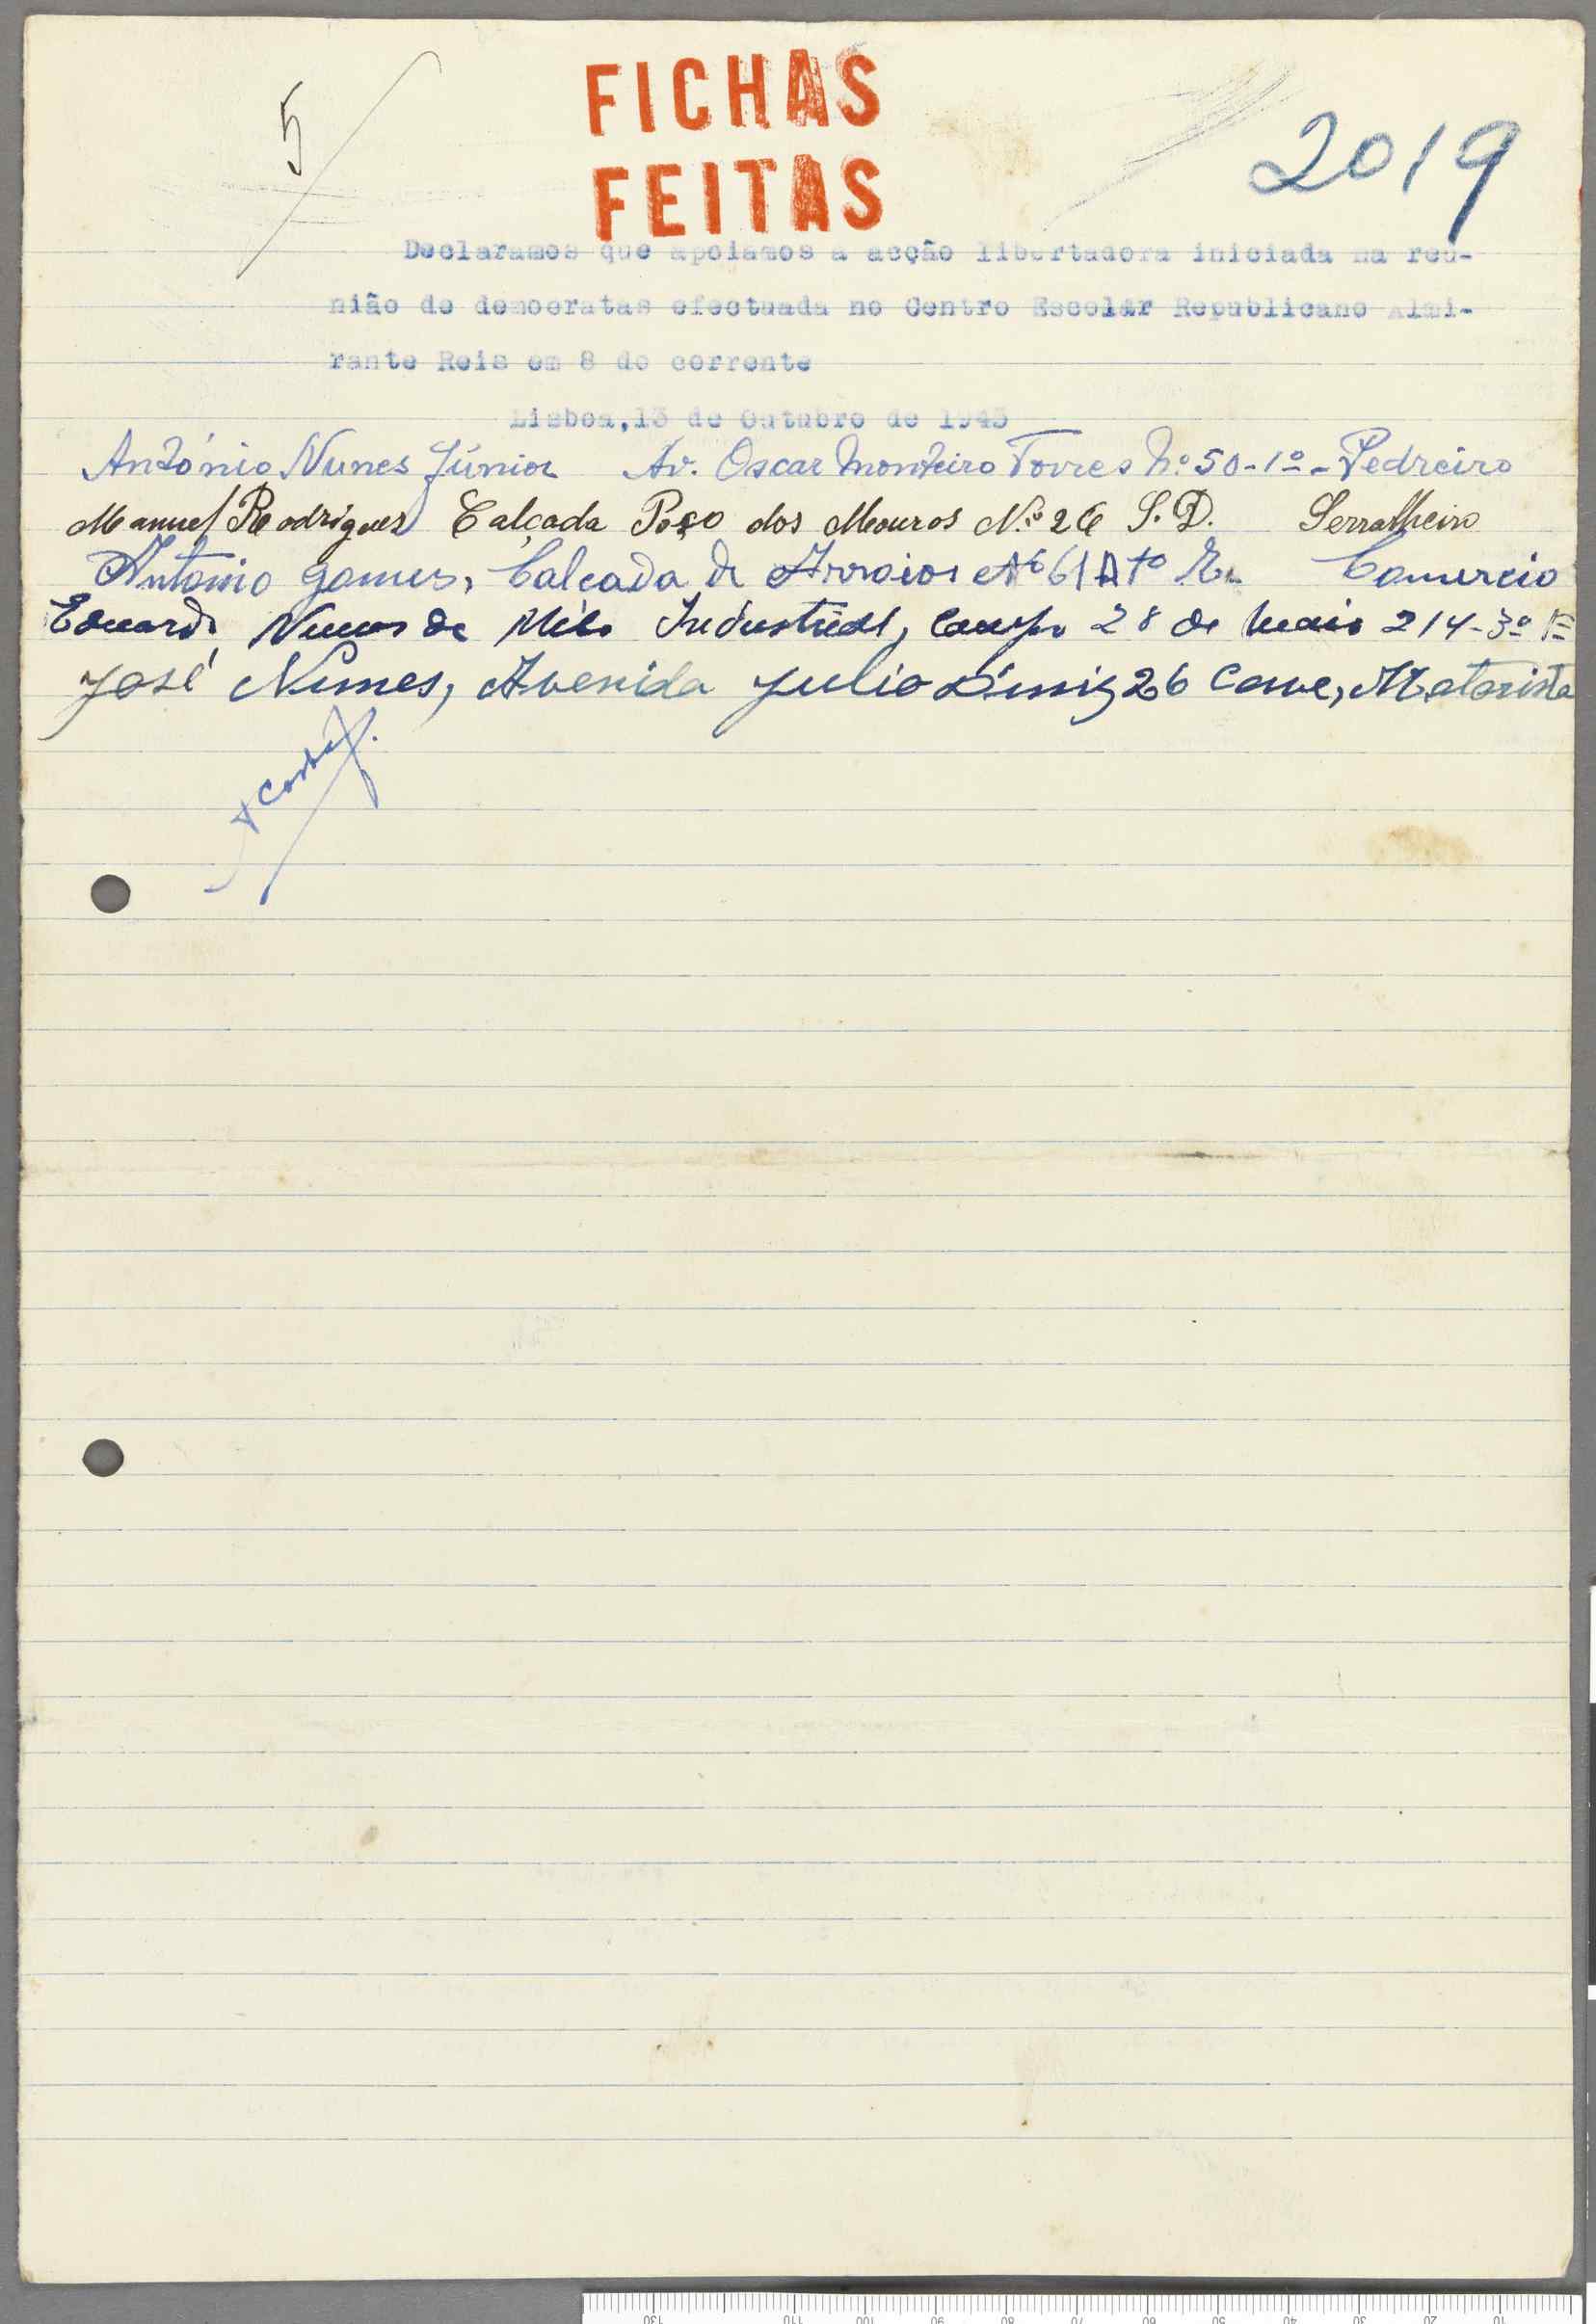 5
FICHAS
FEITAS
2019
Declaramos que apoiamos a acção libertadora iniciada na reu-
nião de democratas efectuada no Centro Escolar Republicano Almi-
rante Reis em 8 do corrente
Lisboa,13 de Outubro de 1945
António Nunes Júnior Av. Oscar Monteiro Torres N.º 50-1º - Pedreiro
Manuel Rodrigues Calçada Poço dos Mouros N.º 26 S.D. Serralheiro
Antonio Gomes, Calçada de Arroios Nº 61 A Comercio
Eduardo Nunes de Industrial, Campo 28 de Maio 214-3º E
José Nunes, Avenida Julio Diniz 26 Cave, Motorista
130 110 100 90 80 70 60 50 40 30 20 10